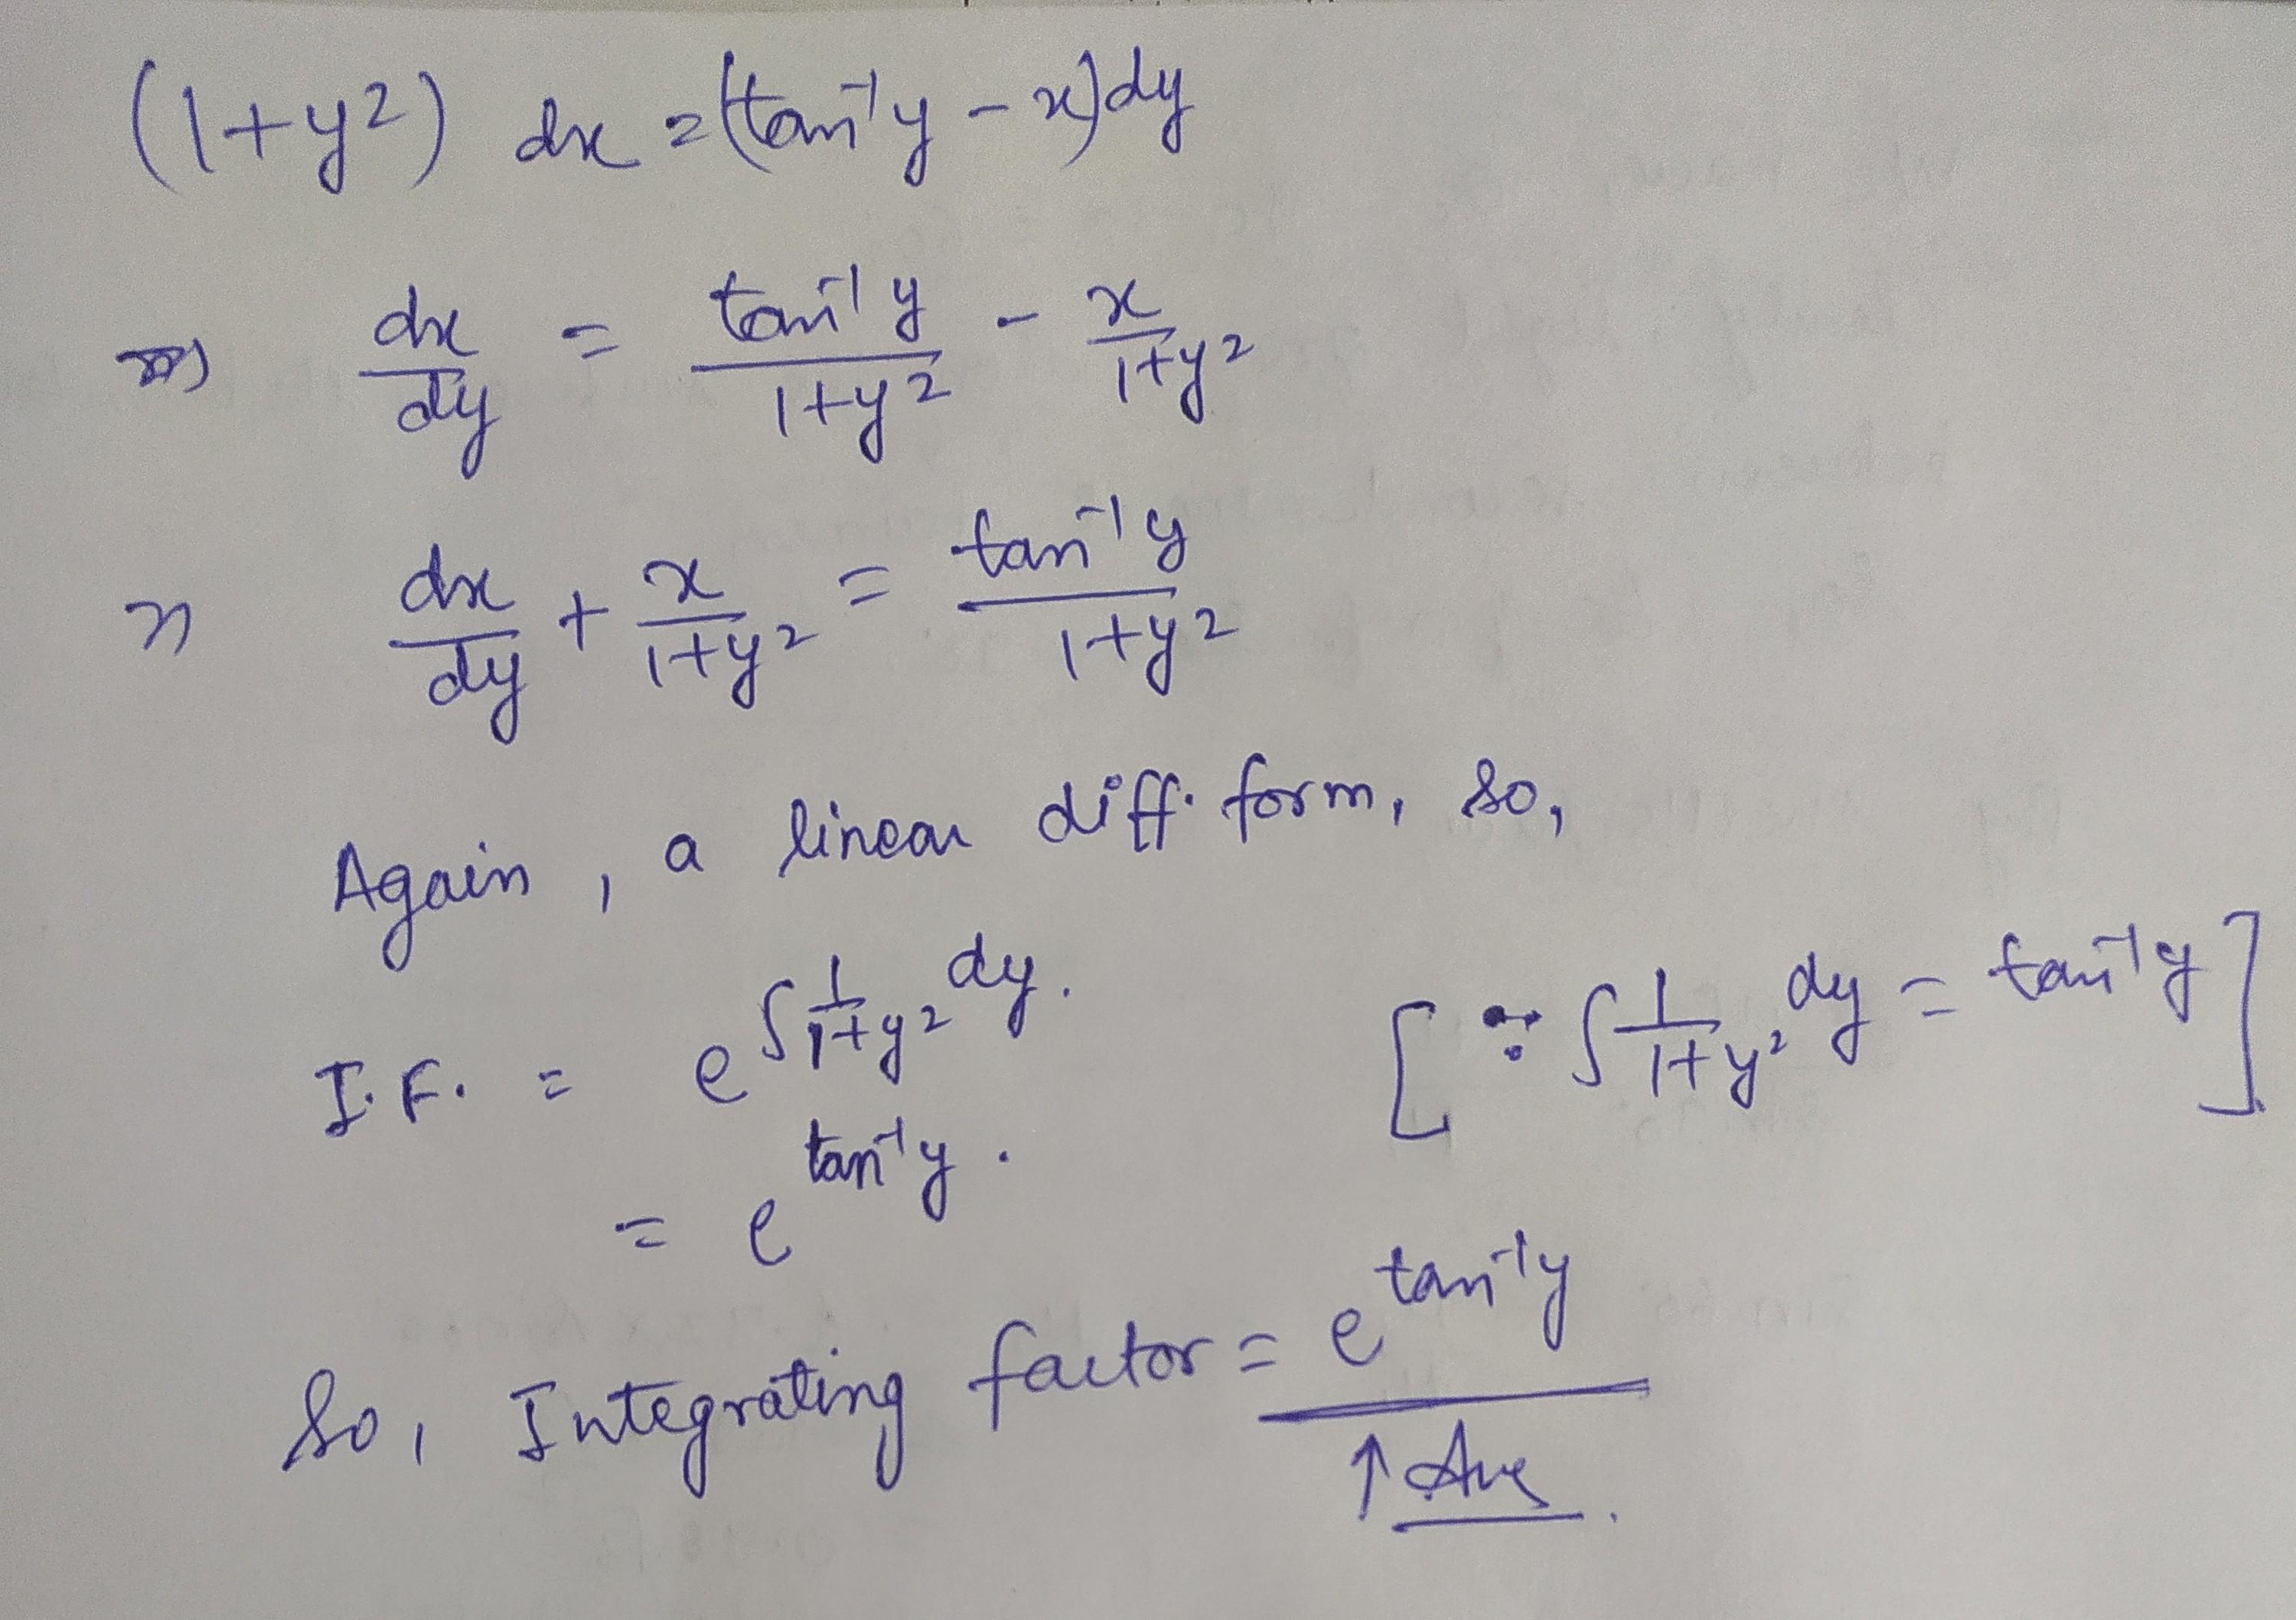 (1+y²) dx = (tan⁻¹y - x)dy
⇒ dx/dy = tan⁻¹y/1+y² - x/1+y²
⇒ dx/dy + x/1+y² = tan⁻¹y/1+y²
Again, a linear diff. form, so,
I.F. = e^∫1/1+y² dy. [∵ ∫1/1+y² dy = tan⁻¹y]
= e^tan⁻¹y.
So, Integrating factor = e^tan⁻¹y
↑ Ans.